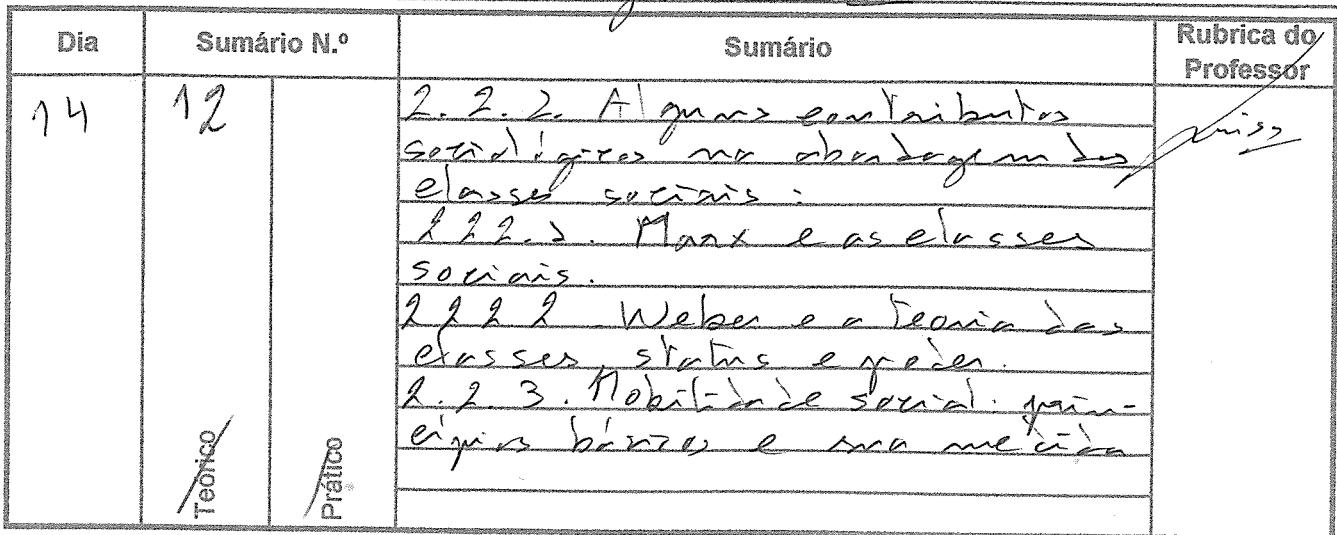 Dia Sumário N.º Sumário Rubrica do Professor
14 12
2.2.2. Alguns contributos
sociológicos na abordagem das
classes sociais:
2.2.2.1. Marx e as classes
sociais.
2.2.2.2. Weber e a teoria das
classes, status e poder.
2.2.3. Mobilidade social: prin-
cípios básicos e sua medida
Teórico Prático